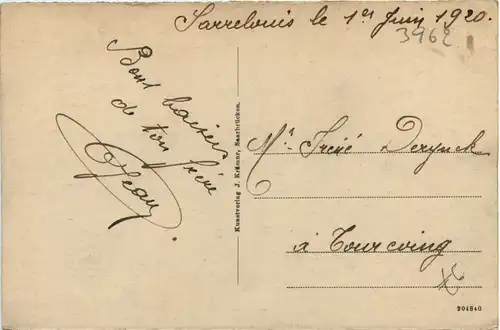 Sarrelouis le 1er Juin 1920.
3962
Bons baisers
de ton frère
Jean
Kunstverlag J. Krämer, Saarbrücken.
Mr Derynck
à Tourcoing
204840